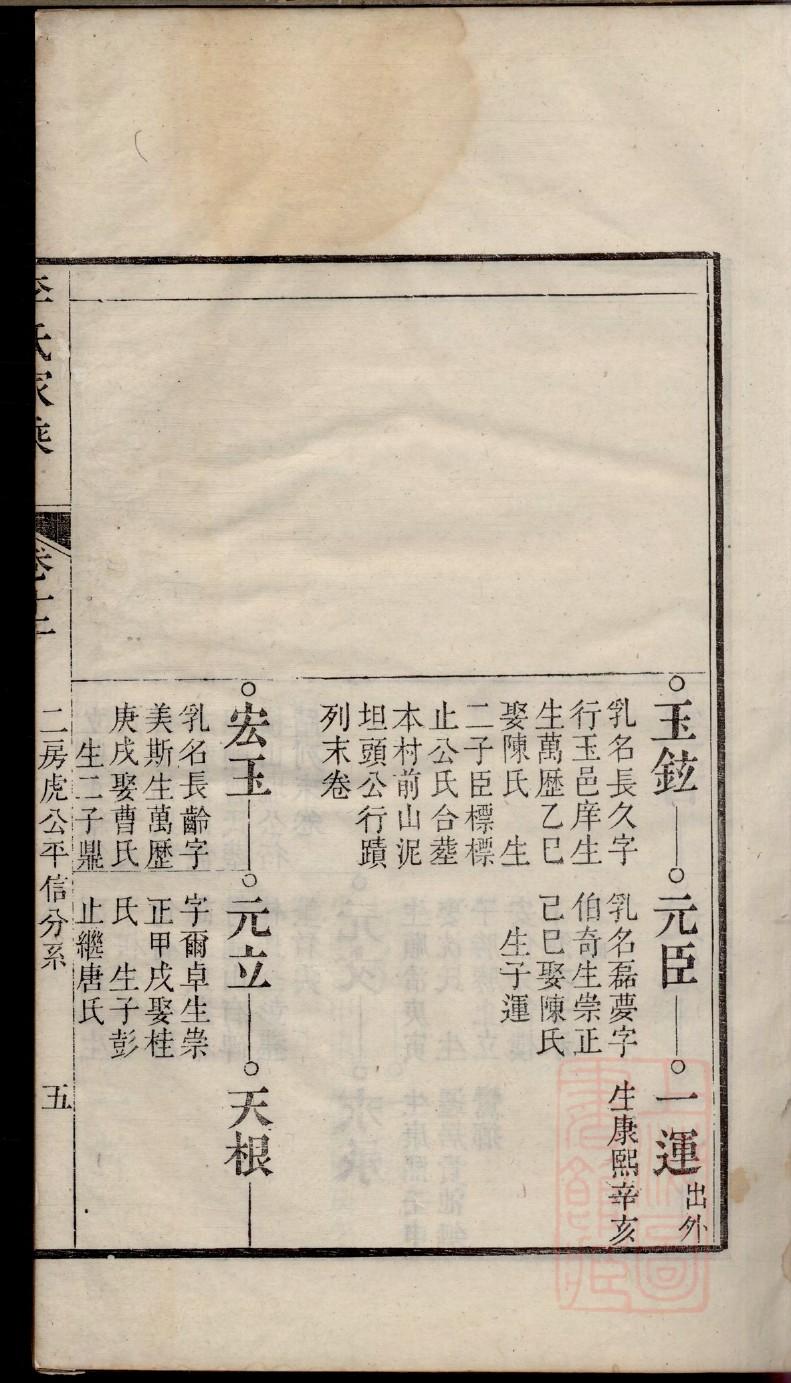 玉鉉
乳名長久字
行玉邑庠生
生萬歷乙巳
娶陳氏　生
二子臣標標
止公氏合塟
本村前山泥
坦頭公行蹟
列末卷
元臣
乳名磊夢字
伯奇生崇正
己巳娶陳氏
生子運
一運 出外
生康熙辛亥
宏玉
乳名長齡字
美斯生萬歷
庚戌娶曹氏
生二子鼎
元立
字爾卓生崇
正甲戌娶桂
氏　生子彭
止繼唐氏
天根
李氏家乘
卷十二
二房虎公平信分系
五